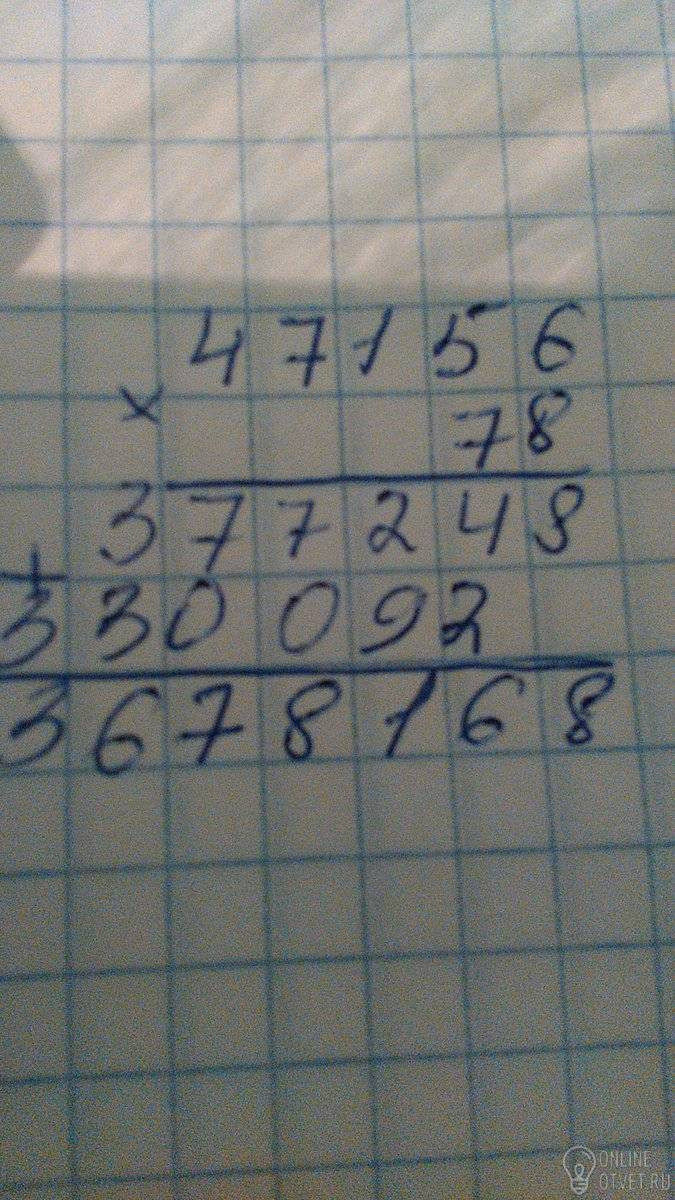 47156
× 78
377248
+
330092
3678168
ONLINE
OTVET.RU